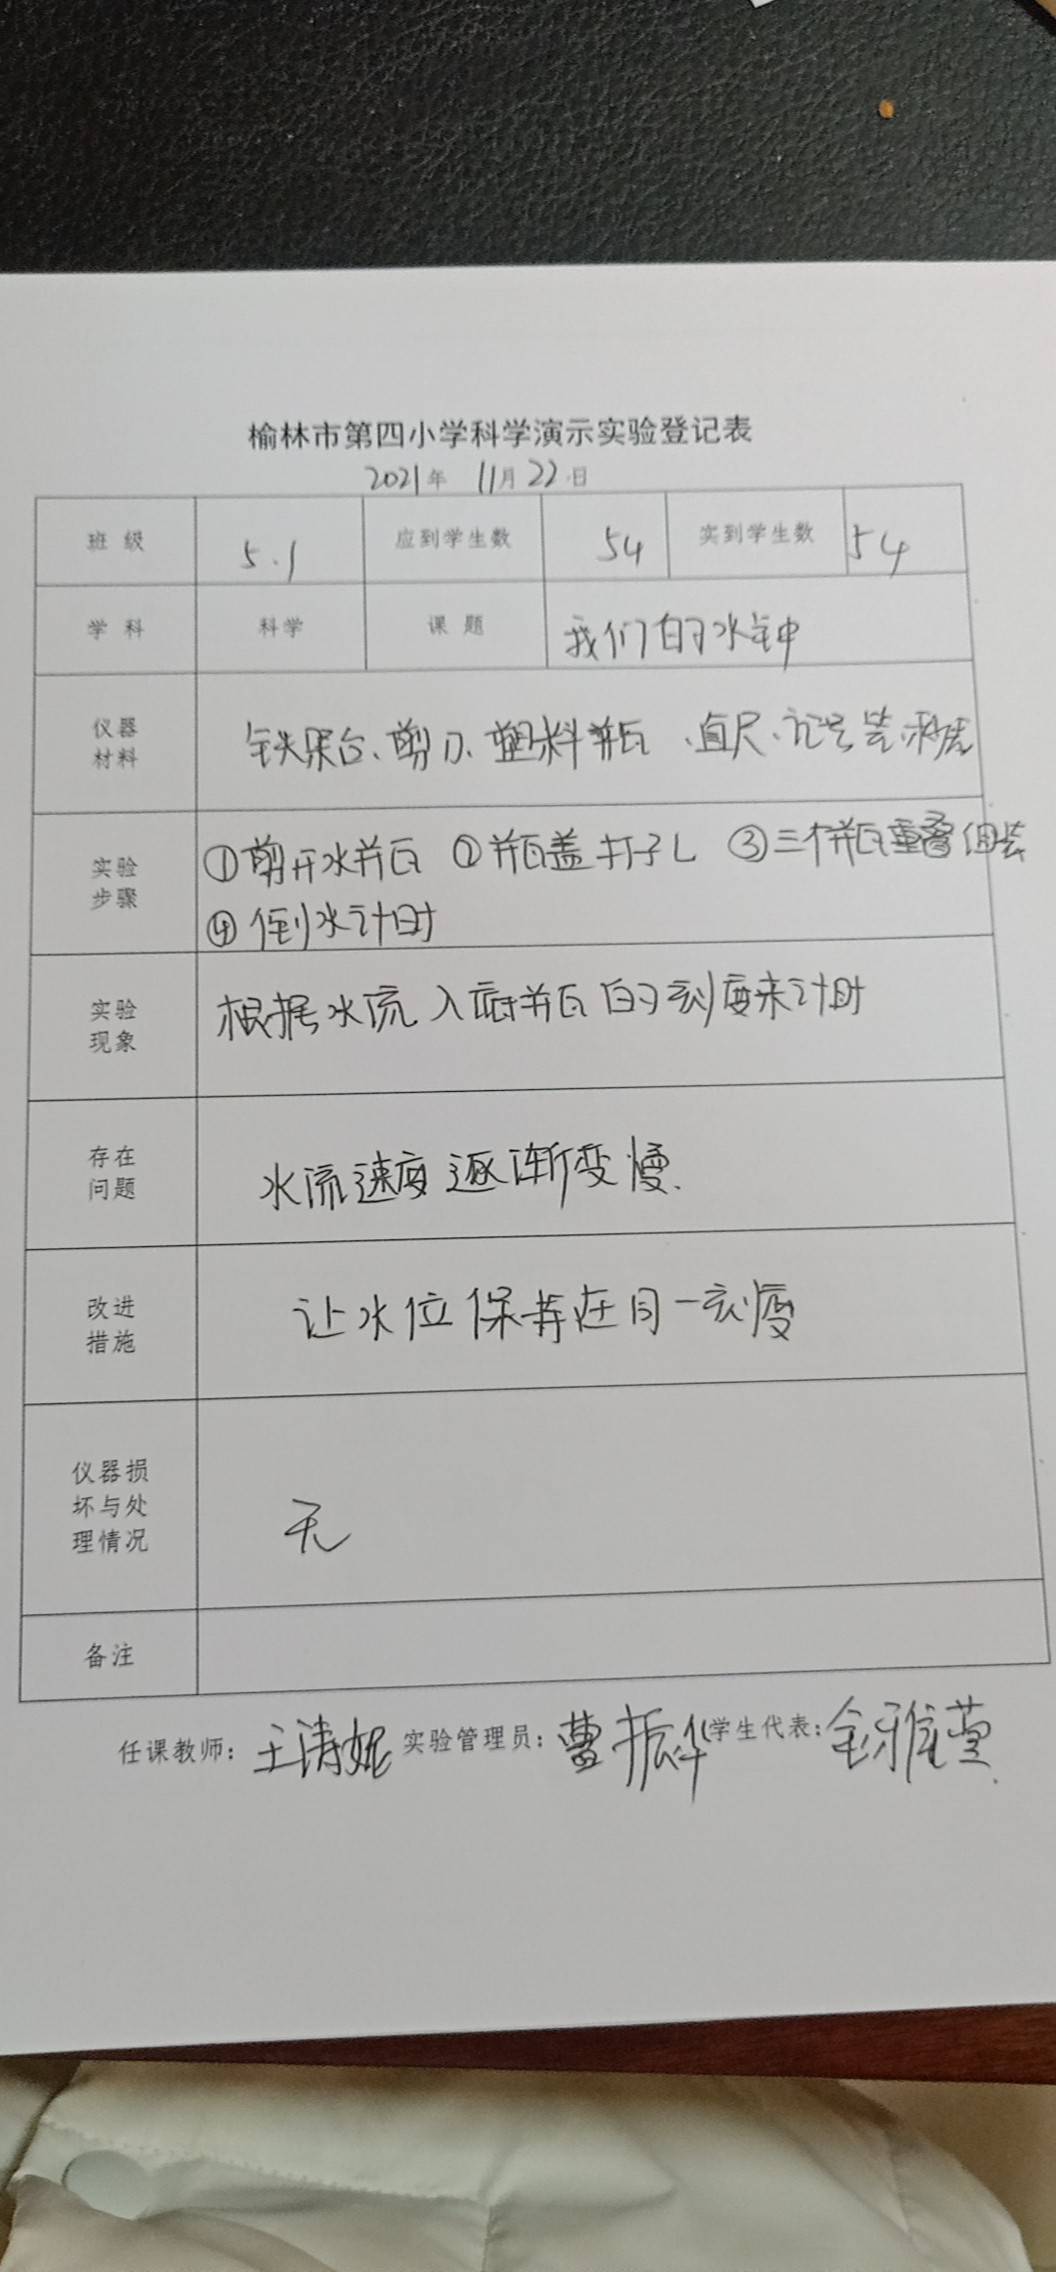 榆林市第四小学科学演示实验登记表
2021年 11月22日
班 级 5.1 应到学生数 54 实到学生数 54
学 科 科学 课 题 我们的水钟
仪器
材料
铁架台、剪刀、塑料瓶、直尺、记号笔、秒表
实验
步骤
①剪开水瓶 ②瓶盖打孔 ③三个瓶重叠组装
④倒水计时
实验
现象
根据水流入底瓶的刻度来计时
存在
问题
水流速度逐渐变慢.
改进
措施
让水位保持在同一刻度
仪器损
坏与处
理情况
无
备注
任课教师: 王涛妮 实验管理员: 曹振华 学生代表: 雅萱